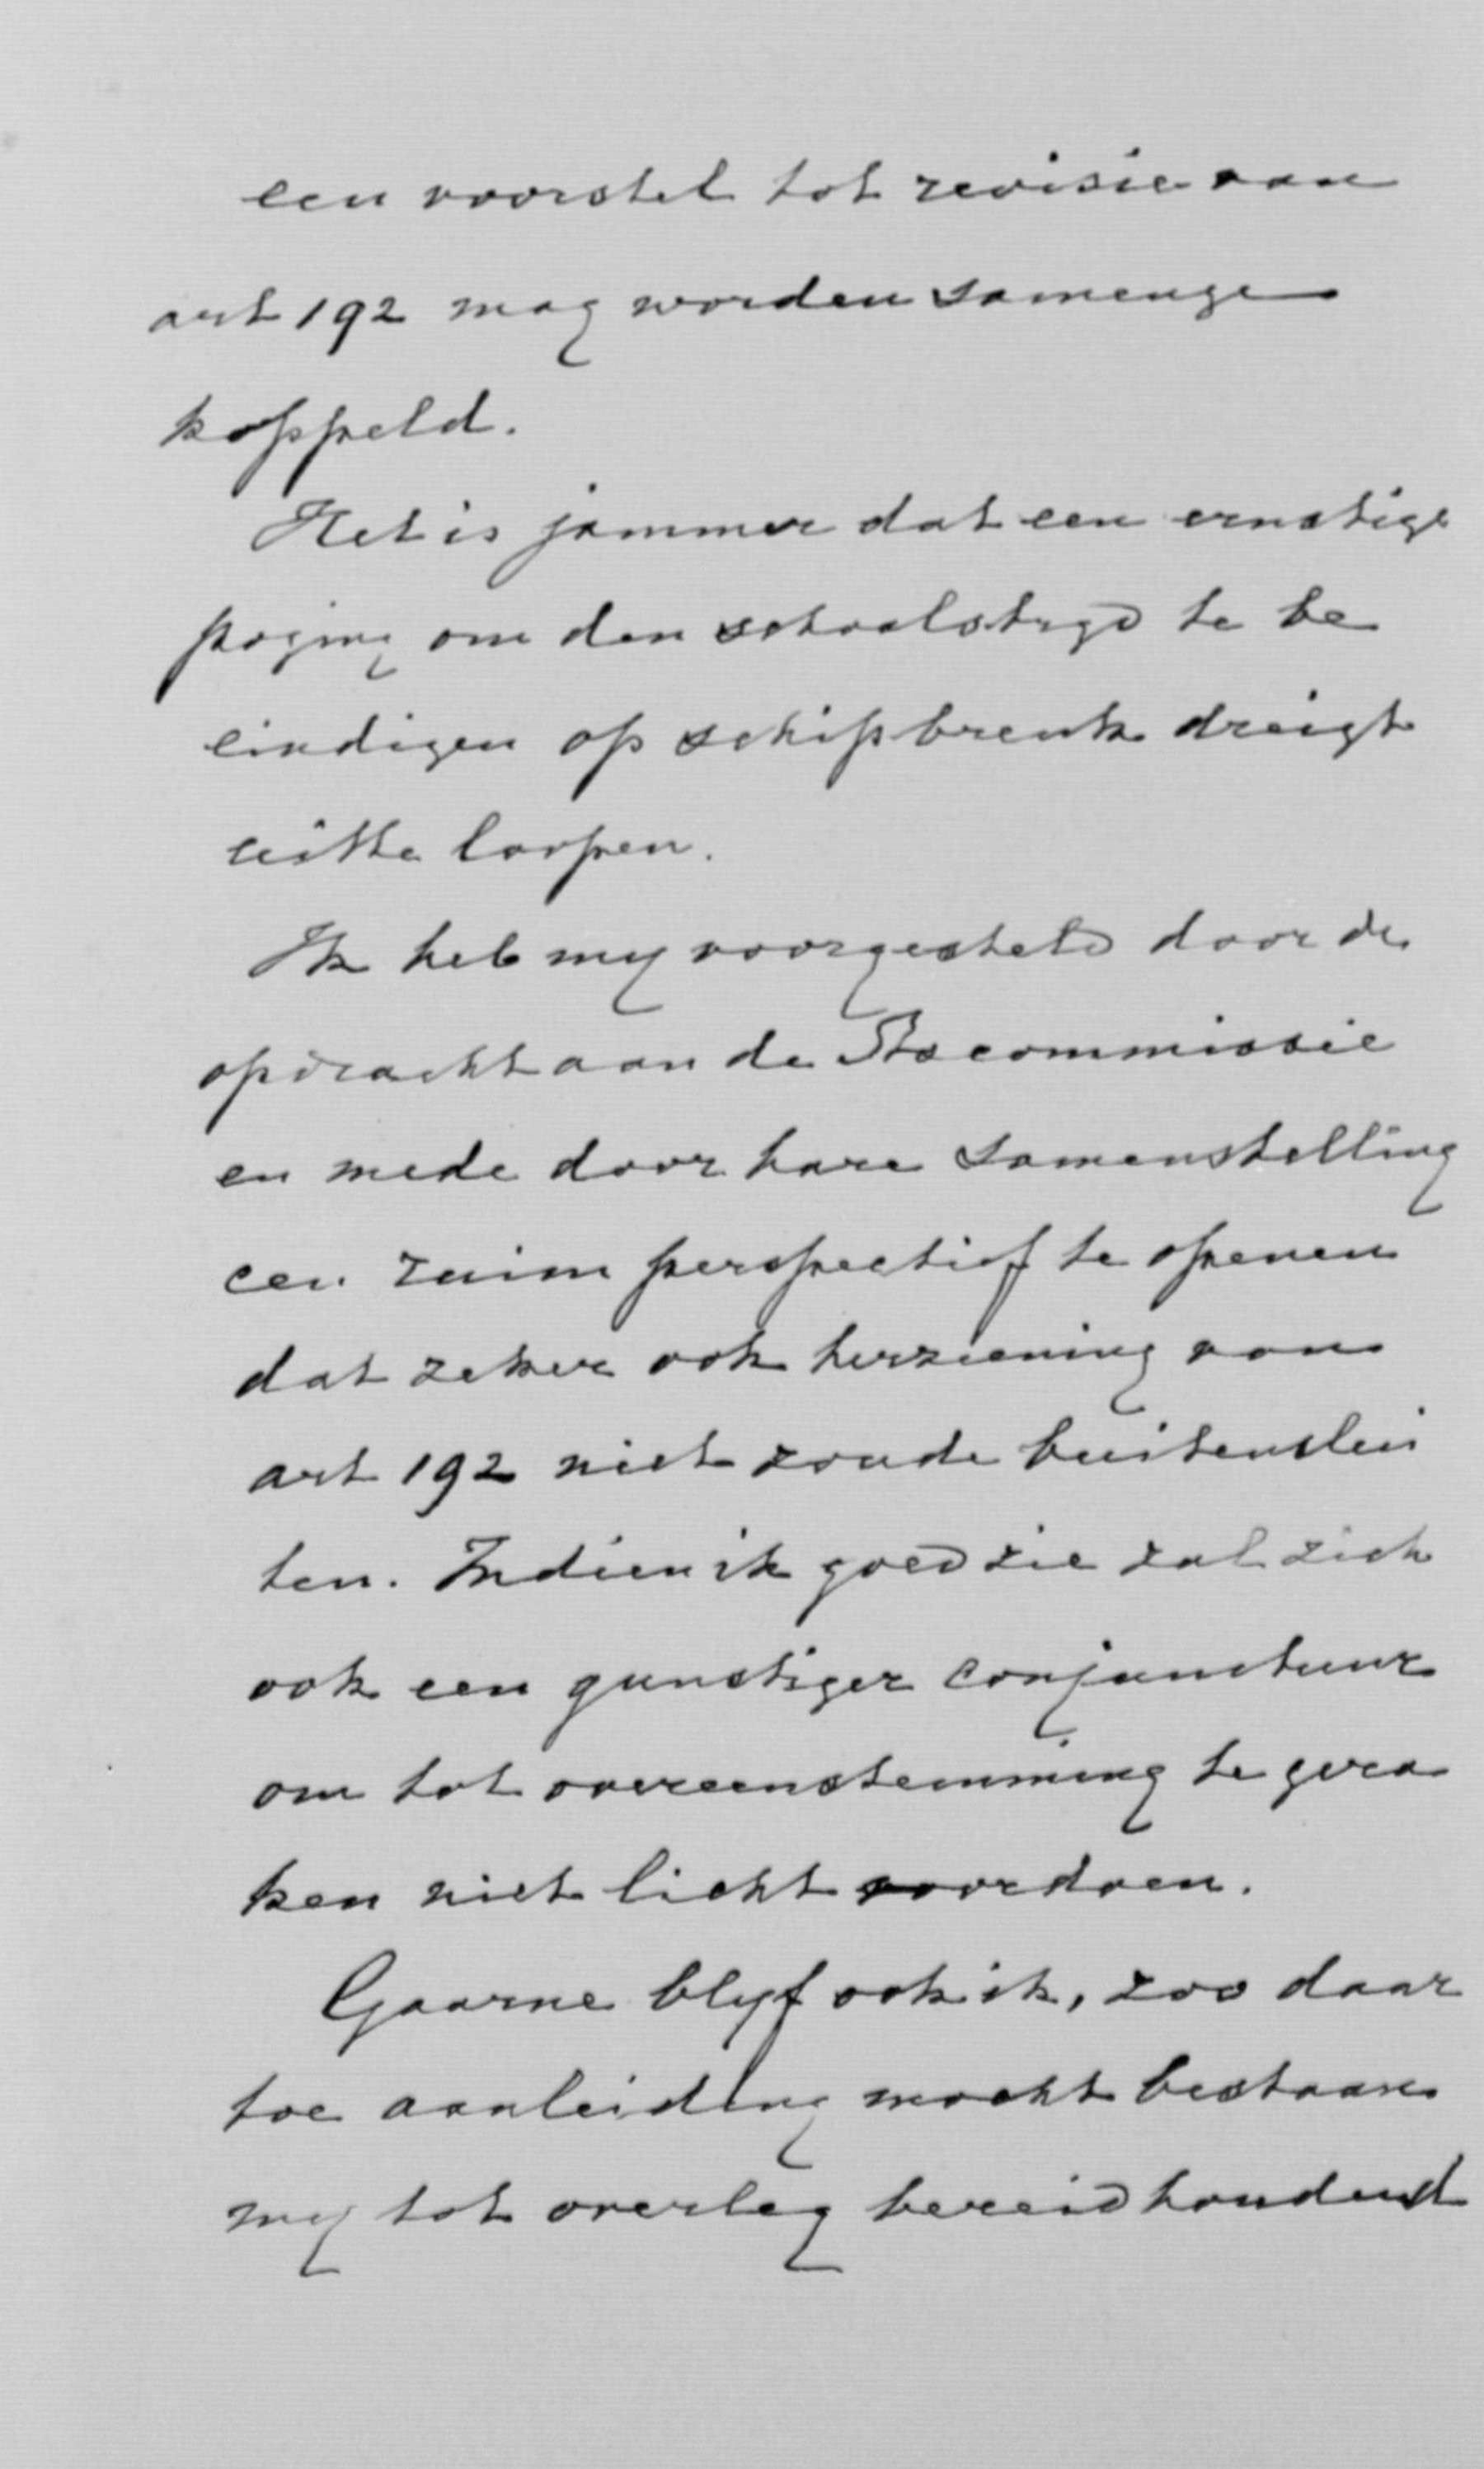 een voorstel tot revisie van
art 192 mag worden samenge
koppeld.
Het is jammer dat een ernstige
poging om den schoolstryd te be
eindigen op schipbreuk dreigt
uitte loopen.
Ik heb my voorgesteld door de
opdracht aan de Stscommissie
en mede door hare samenstelling
een ruim perspectief te openen
dat zeker ook herziening van
art 192 niet zoude buitenslui
ten. Indien ik goed zie zal zich
ook een gunstiger conjunctuur
om tot overeenstemming te gera
ken niet licht voordoen.
Gaarne blyf ook ik, zoo daar
toe aanleiding mocht bestaan
my tot overleg bereid houdend